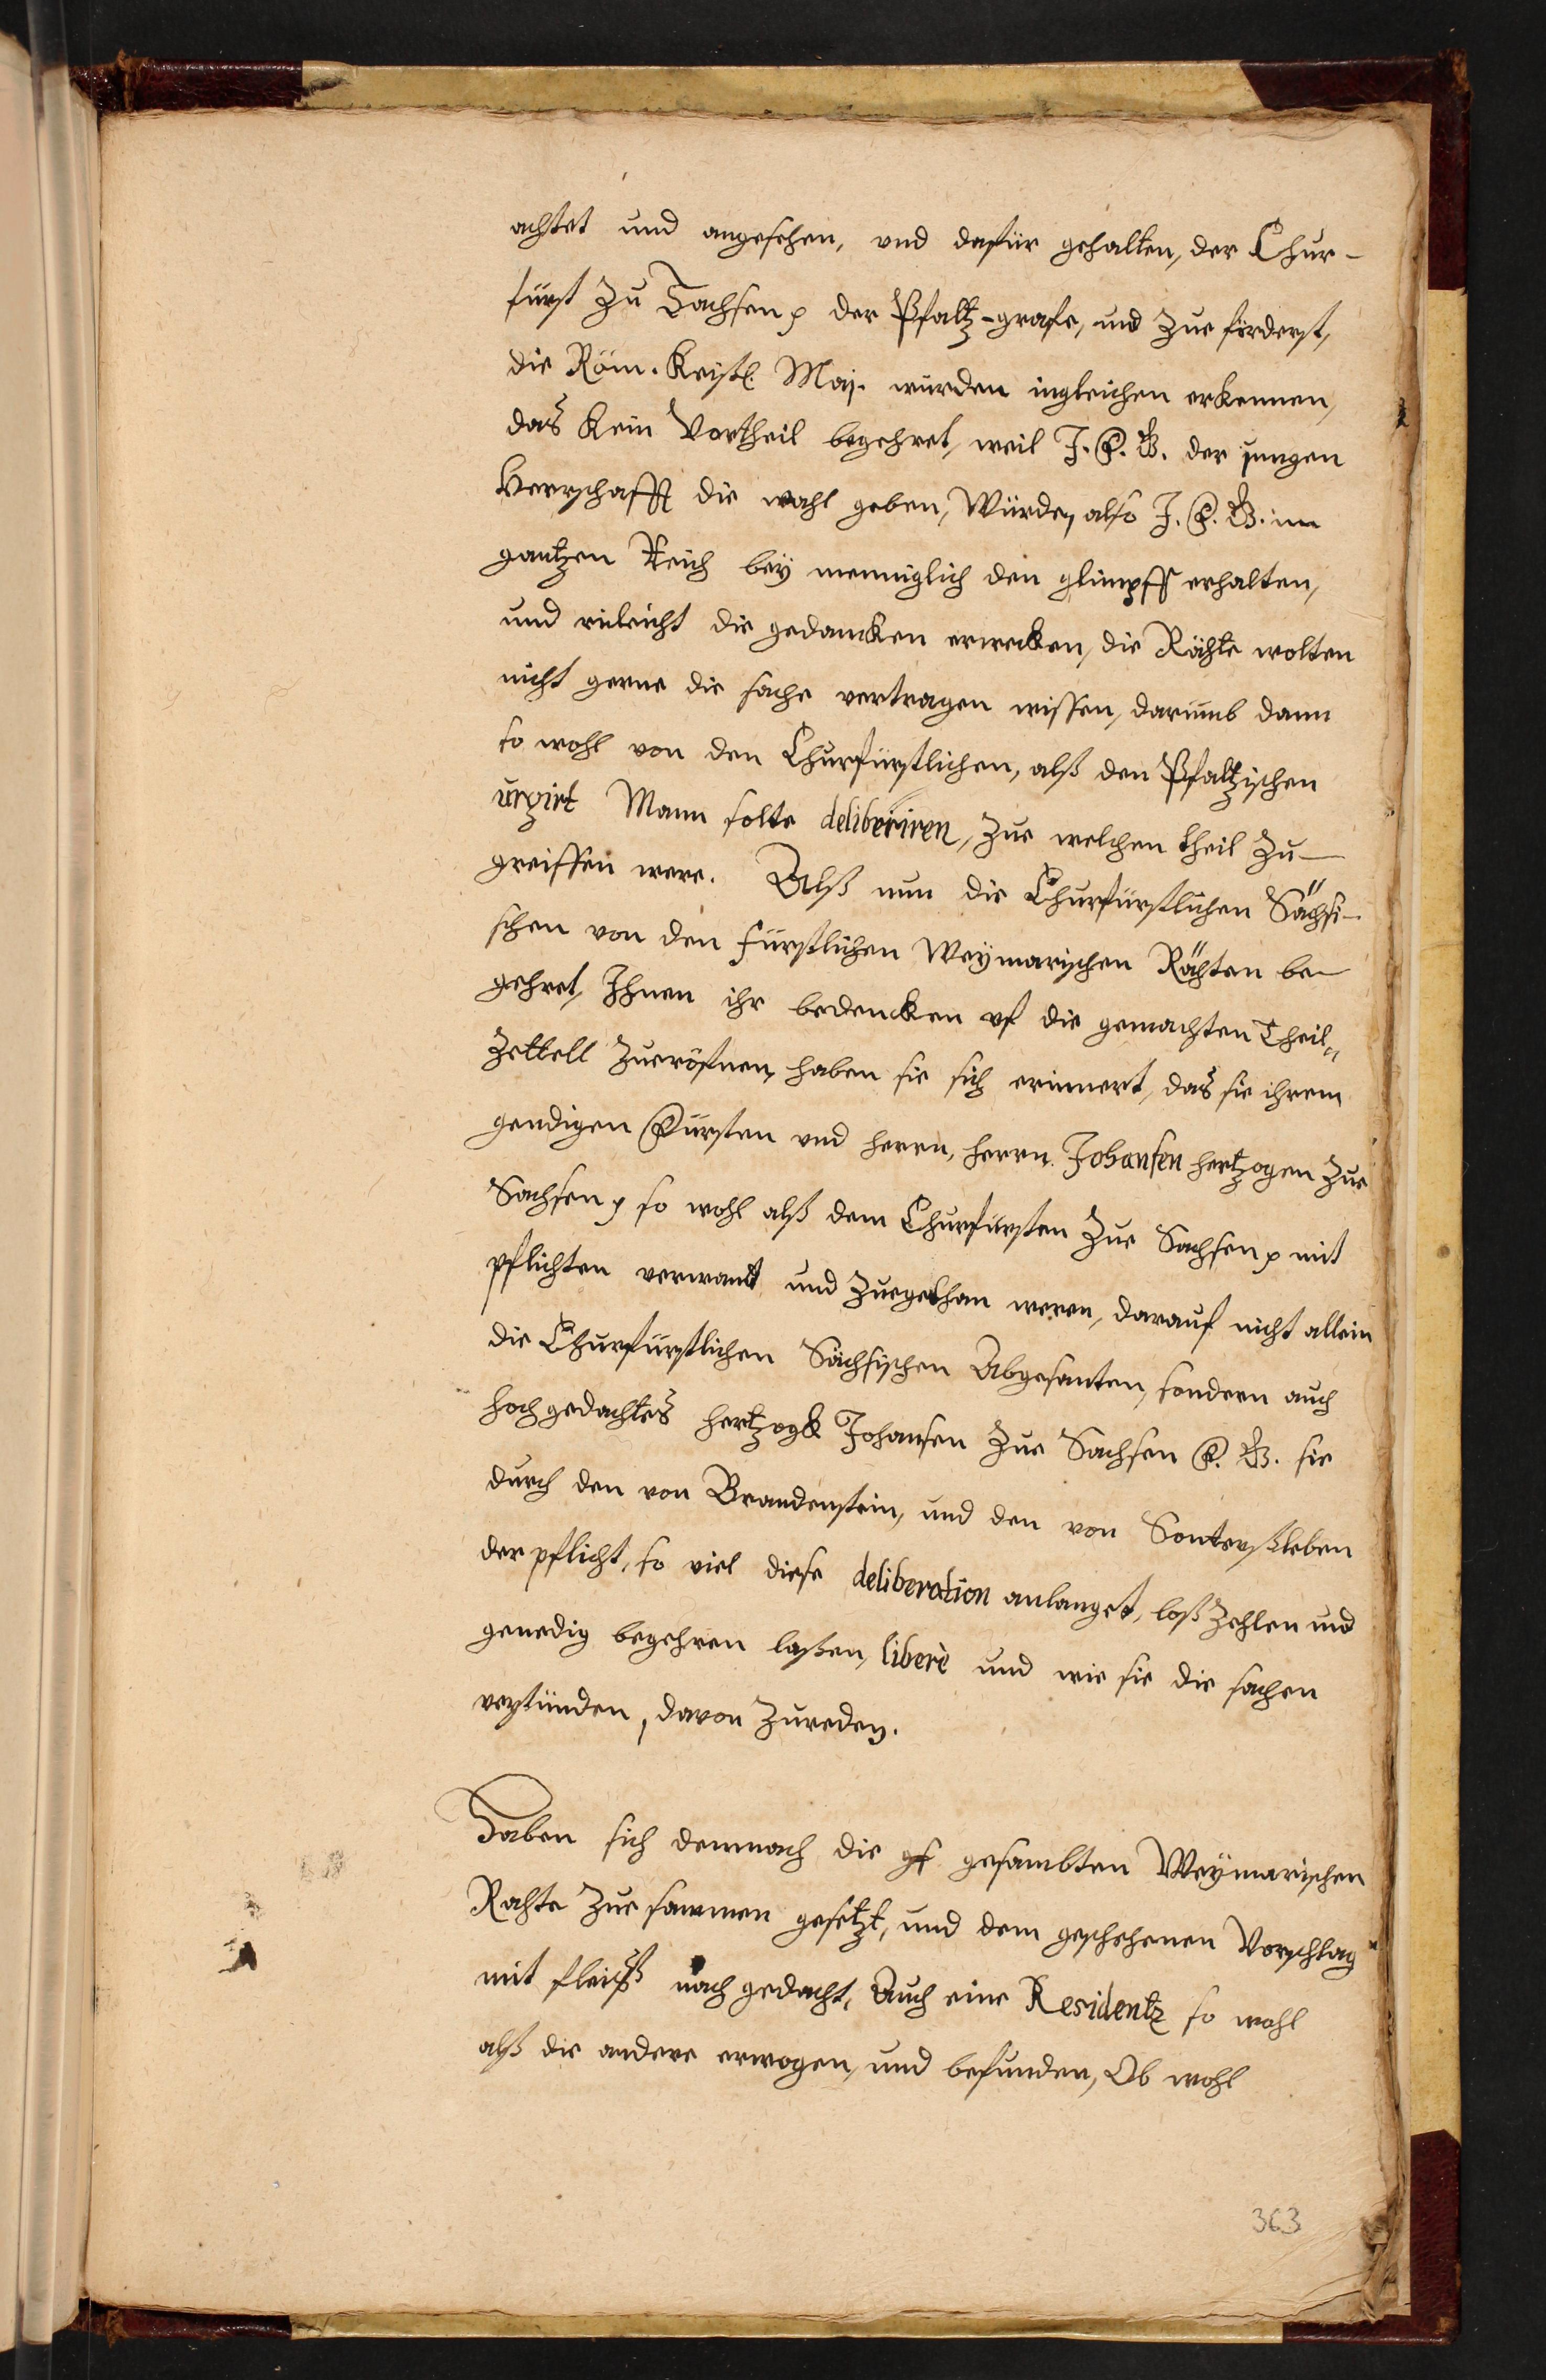 achtet und angesehen, vnd dafür gehalten, der Chur-
fürst zu Sachsen der Pfaltz-grafe, und zue förderst,
die Röm. Keisl. Maj. würden ingleichen erkennen,
das kein Vortheil begehret, weil J. F. G. der jungen
Herrschafft die wahl geben, Würde, also J. F. G. im
gantzen Reich bey menniglich den glimpff erhalten,
und vieleicht die gedancken erwecken, die Rähte wolten
nicht gerne die sache vertragen wissen, darumb dann
so wohl von den Churfürstlichen, alß den Pfaltzischen
urgirt Mann solte deliberiren, zue welchen theil zu-
greiffen were. Alß nun die Churfürstlichen Sächsi-
schen von den fürstlichen Weymarischen Rähten be-
gehret, Ihnen ihr bedencken vf die gemachten Theil„
zettell zueröfnen, haben sie sich erinnert, das sie ihrem
genedigen Fürsten vnd herrn, herrn Johansen hertzogen zue
Sachsen so wohl alß dem Churfürsten zue Sachsen mit
pflichten verwant und zuegethan weren, darauf nicht allein
die Churfürstlichen Sächsischen Abgesanten, sondern auch
hochgedachtes hertzogk Johansen zue Sachsen F. G. sie
durch den von Brandenstein, und den von Sonterßleben
der pflicht, so viel diese deliberation anlanget, loß zehlen und
genedig begehren laßen, liberè und wie sie die sachen
verstünden, davon zureden.
Haben sich demnach die gesambten Weymarischen
Rähte zue sammen gesetzt, und dem geschehenen Vorschlag
mit fleiß nach gedacht, Auch eine Residentz so wohl
alß die andere erwogen, und befunden, Ob wohl
363